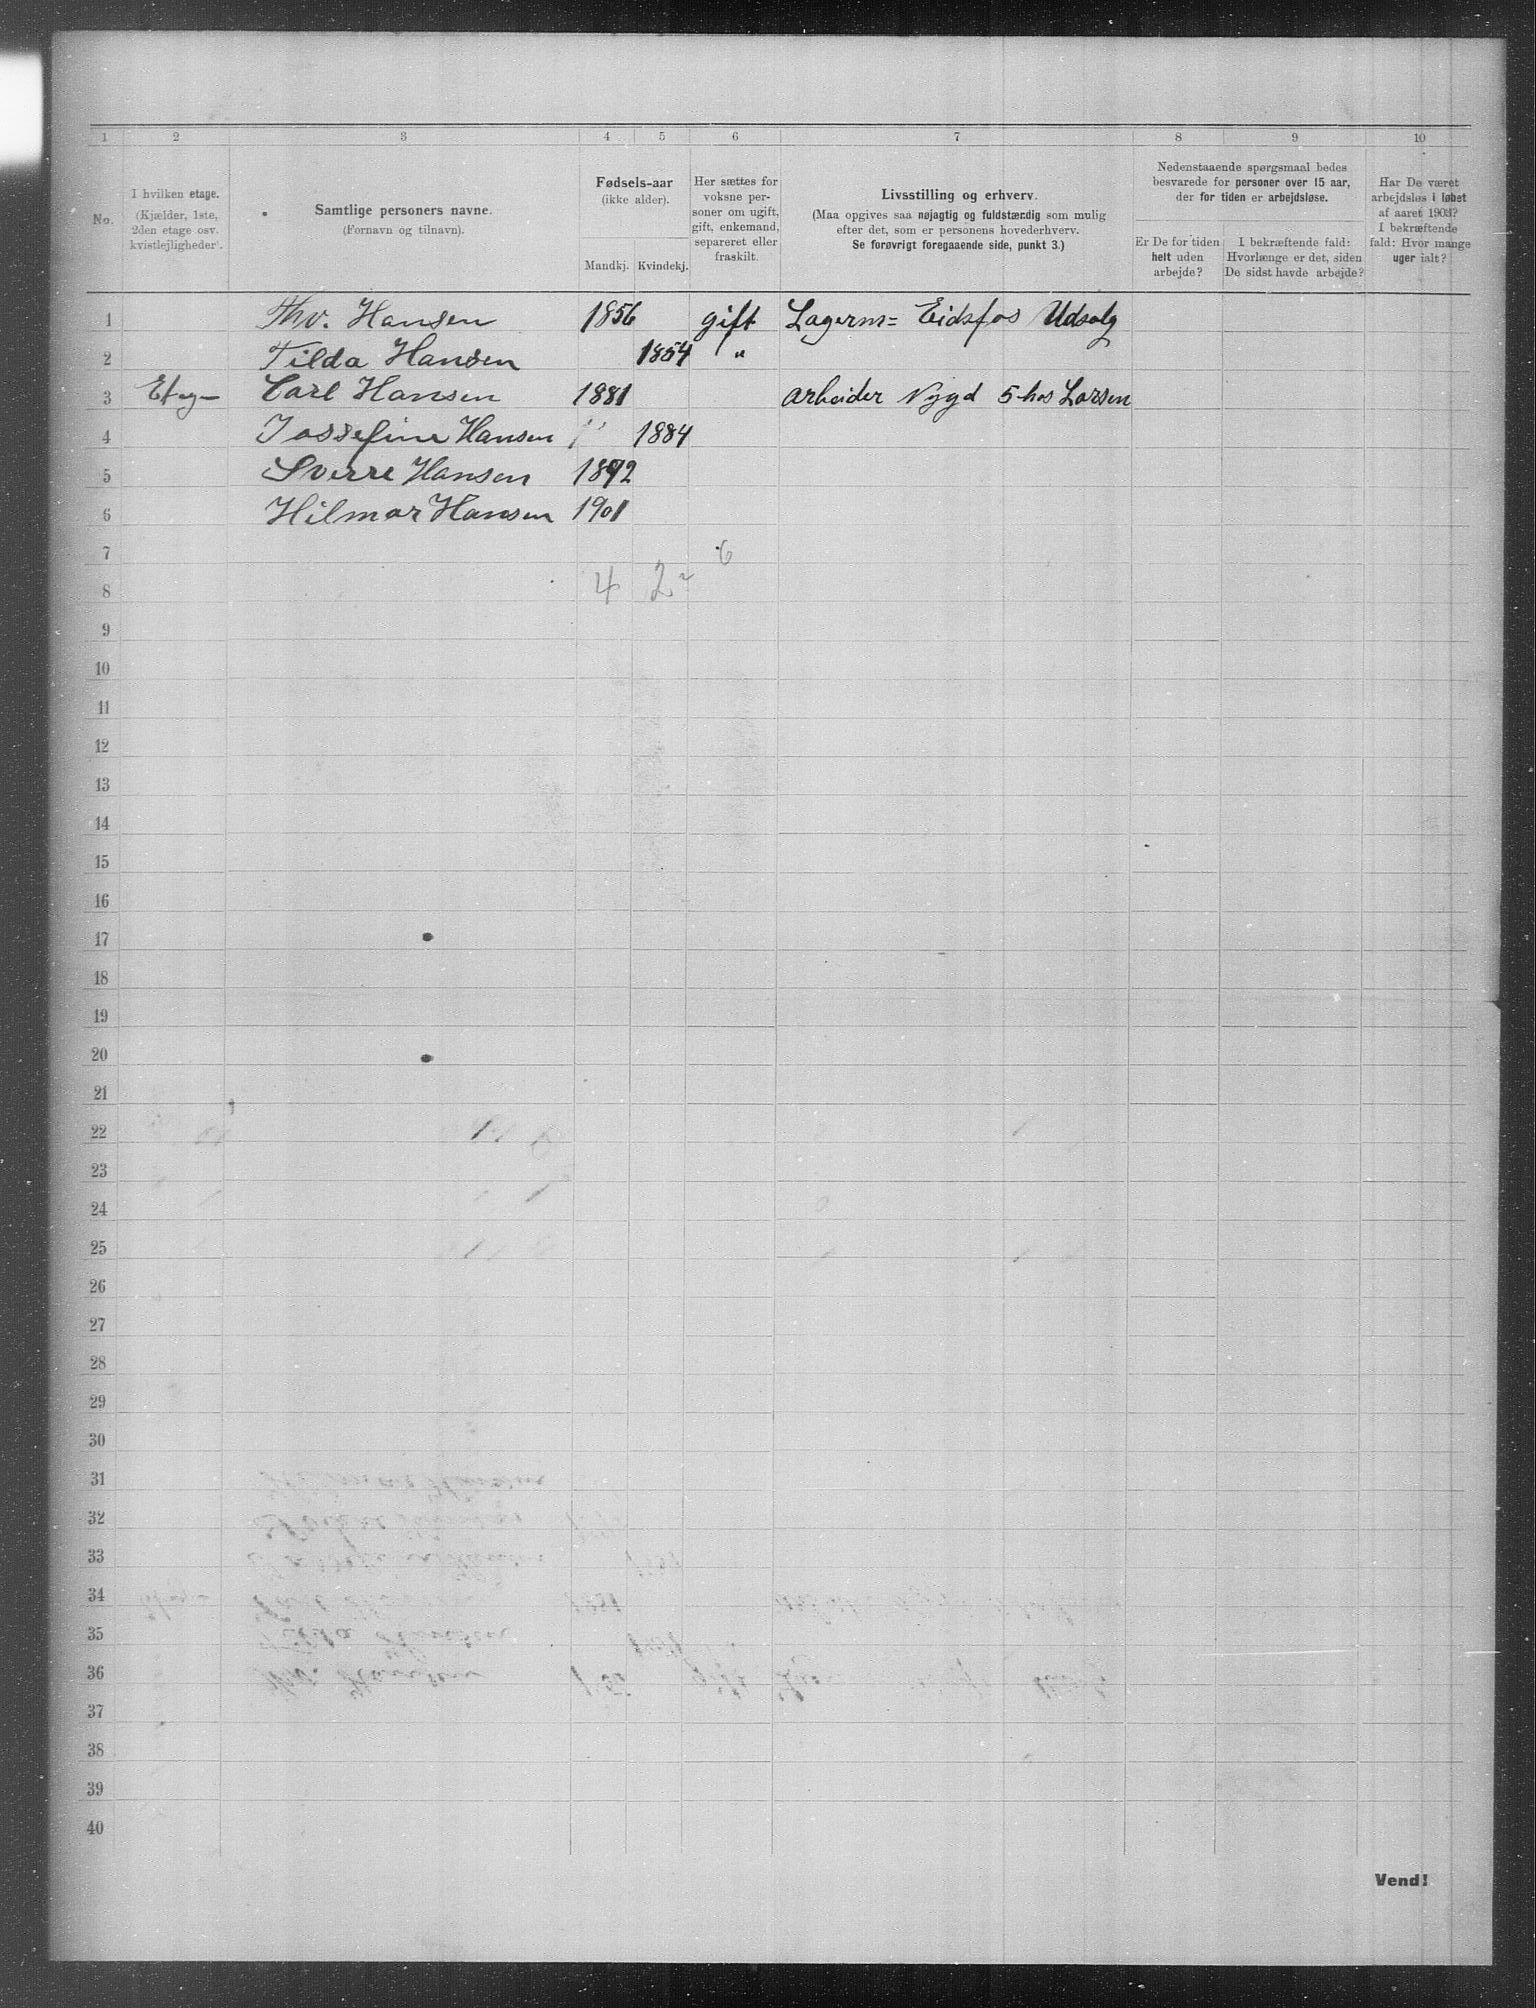 1 2 3 4 5 6 7 8 9 10
No.
I hvilken etage.
(Kjælder, 1ste,
2den etage osv.
kvistlejligheder).
Samtlige personers navne.
(Fornavn og tilnavn).
Fødsels-aar
(ikke alder).
Mandkj. Kvindekj.
Her sættes for
voksne per-
soner om ugift,
gift, enkemand,
separeret eller
fraskilt.
Livsstilling og erhverv.
(Maa opgives saa nøjagtig og fuldstændig som mulig
efter det, som er personens hovederhverv.
Se forøvrigt foregaaende side, punkt 3.)
Nedenstaaende spørgsmaal bedes
besvarede for personer over 15 aar,
der for tiden er arbejdsløse.
Er De for tiden
helt uden
arbejde?
I bekræftende fald:
Hvorlænge er det, siden
De sidst havde arbejde?
Har De været
arbejdsløs i løbet
af aaret 1903?
I bekræftende
fald: Hvor mange
uger ialt?
1 Thv. Hansen 1856 gift Lagerm= Eidsfos Udsalg
2 Tilda Hansen 1854 "
3 Etag- Carl Hansen 1881 arbeider Nygd 5 hos Larsen
4 Jossefine Hansen 1884
5 Sverre Hansen 1892
6 Hilmar Hansen 1901
7 6
8 4 2
9
10
11
12
13
14
15
16
17
18
19
20
21
22
23
24
25
26
27
28
29
30
31
32
33
34
35
36
37
38
39
40
Vend!